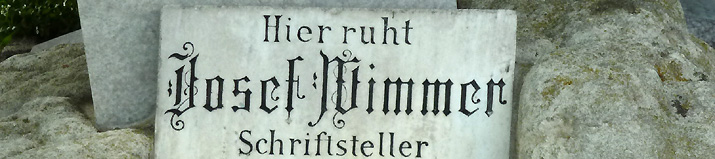 Hier ruht
Josef Wimmer
Schriftsteller